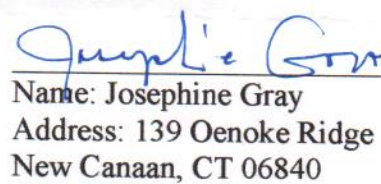 Josephine Gray
Name: Josephine Gray
Address: 139 Oenoke Ridge
New Canaan, CT 06840